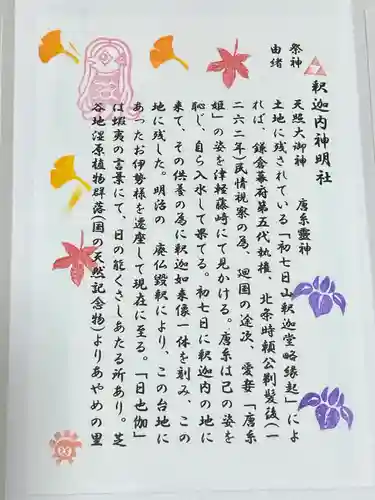 釈迦内神明社
祭神　天照大御神　唐糸靈神
由緒
土地に残されている「初七日山釈迦堂略縁起」によ
れば、鎌倉幕府第五代執権、北条時頼公剃髪後(一
二六二年)民情視察の為、廻国の途次、愛妾「唐糸
姫」の姿を津軽藤崎にて見かける。唐糸は己の姿を
恥じ、自ら入水して果てる。初七日に釈迦内の地に
来て、その供養の為に釈迦如来像一体を刻み、この
地に残した。明治の　廃仏毀釈により、この台地に
あったお伊勢様を遷座して現在に至る。「日也伽」
は蝦夷の言葉にて、日の能くさしあたる所あり。芝
谷地湿原植物群落(国の天然記念物)よりあやめの里